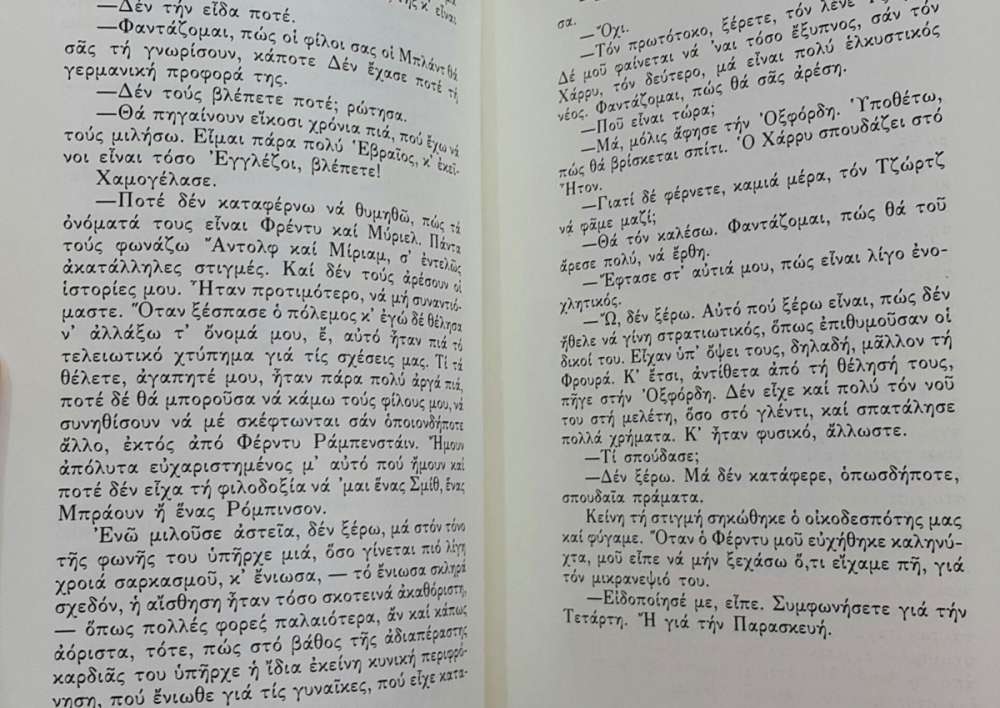 κ’ εἶναι
—Δέν τήν εἶδα ποτέ.
—Φαντάζομαι, πώς οἱ φίλοι σας οἱ Μπλάντ θά
σᾶς τή γνωρίσουν, κάποτε Δέν ἔχασε ποτέ τή
γερμανική προφορά της.
—Δέν τούς βλέπετε ποτέ; ρώτησα.
—Θά πηγαίνουν εἴκοσι χρόνια πιά, πού ἔχω νά
τούς μιλήσω. Εἶμαι πάρα πολύ Ἑβραῖος, κ’ ἐκεῖ-
νοι εἶναι τόσο Ἐγγλέζοι, βλέπετε!
Χαμογέλασε.
—Ποτέ δέν καταφέρνω νά θυμηθῶ, πώς τά
ὀνόματά τους εἶναι Φρέντυ καί Μύριελ. Πάντα
τούς φωνάζω Ἄντολφ καί Μίριαμ, σ’ ἐντελῶς
ἀκατάλληλες στιγμές. Καί δέν τούς ἀρέσουν οἱ
ἱστορίες μου. Ἦταν προτιμότερο, νά μή συναντιό-
μαστε. Ὅταν ξέσπασε ὁ πόλεμος κ’ ἐγώ δέ θέλησα
ν’ ἀλλάξω τ’ ὄνομά μου, ἔ, αὐτό ἦταν πιά τό
τελειωτικό χτύπημα γιά τίς σχέσεις μας. Τί τά
θέλετε, ἀγαπητέ μου, ἦταν πάρα πολύ ἀργά πιά,
ποτέ δέ θά μποροῦσα νά κάμω τούς φίλους μου, νά
συνηθίσουν νά μέ σκέφτωνται σάν ὁποιονδήποτε
ἄλλο, ἐκτός ἀπό Φέρντυ Ράμπενστάιν. Ἤμουν
ἀπόλυτα εὐχαριστημένος μ’ αὐτό πού ἤμουν καί
ποτέ δέν εἶχα τή φιλοδοξία νά ’μαι ἕνας Σμίθ, ἕνας
Μπράουν ἤ ἕνας Ρόμπινσον.
Ἐνῶ μιλοῦσε ἀστεῖα, δέν ξέρω, μά στόν τόνο
τῆς φωνῆς του ὑπῆρχε μιά, ὅσο γίνεται πιό λίγη
χροιά σαρκασμοῦ, κ’ ἔνιωσα, — τό ἔνιωσα σκληρά
σχεδόν, ἡ αἴσθηση ἦταν τόσο σκοτεινά ἀκαθόριστη,
— ὅπως πολλές φορές παλαιότερα, ἄν καί κάπως
ἀόριστα, τότε, πώς στό βάθος τῆς ἀδιαπέραστης
καρδιᾶς του ὑπῆρχε ἡ ἴδια ἐκείνη κυνική περιφρό-
νηση, πού ἔνιωθε γιά τίς γυναῖκες, πού εἶχε κατα-
σα.
—Ὄχι.
—Τόν πρωτότοκο, ξέρετε, τόν λένε
Δέ μοῦ φαίνεται νά ’ναι τόσο ἔξυπνος, σάν τόν
Χάρρυ, τόν δεύτερο, μά εἶναι πολύ ἑλκυστικός
νέος. Φαντάζομαι, πώς θά σᾶς ἀρέση.
—Ποῦ εἶναι τώρα;
—Μά, μόλις ἄφησε τήν Ὀξφόρδη. Ὑποθέτω,
πώς θά βρίσκεται σπίτι. Ὁ Χάρρυ σπουδάζει στό
Ἤτον.
—Γιατί δέ φέρνετε, καμιά μέρα, τόν Τζώρτζ
νά φᾶμε μαζί;
—Θά τόν καλέσω. Φαντάζομαι, πώς θά τοῦ
ἄρεσε πολύ, νά ἔρθη.
—Ἔφτασε στ’ αὐτιά μου, πώς εἶναι λίγο ἐνο-
χλητικός.
—Ὤ, δέν ξέρω. Αὐτό πού ξέρω εἶναι, πώς δέν
ἤθελε νά γίνη στρατιωτικός, ὅπως ἐπιθυμοῦσαν οἱ
δικοί του. Εἶχαν ὑπ’ ὄψει τους, δηλαδή, μᾶλλον τή
Φρουρά. Κ’ ἔτσι, ἀντίθετα ἀπό τή θέλησή τους,
πῆγε στήν Ὀξφόρδη. Δέν εἶχε καί πολύ τόν νοῦ
του στή μελέτη, ὅσο στό γλέντι, καί σπατάλησε
πολλά χρήματα. Κ’ ἦταν φυσικό, ἄλλωστε.
—Τί σπούδασε;
—Δέν ξέρω. Μά δέν κατάφερε, ὁπωσδήποτε,
σπουδαῖα πράματα.
Κείνη τή στιγμή σηκώθηκε ὁ οἰκοδεσπότης μας
καί φύγαμε. Ὅταν ὁ Φέρντυ μοῦ εὐχήθηκε καληνύ-
χτα, μοῦ εἶπε νά μήν ξεχάσω ὅ,τι εἴχαμε πῆ, γιά
τόν μικρανεψιό του.
—Εἰδοποίησέ με, εἶπε. Συμφωνήσετε γιά τήν
Τετάρτη. Ἤ γιά τήν Παρασκευή.